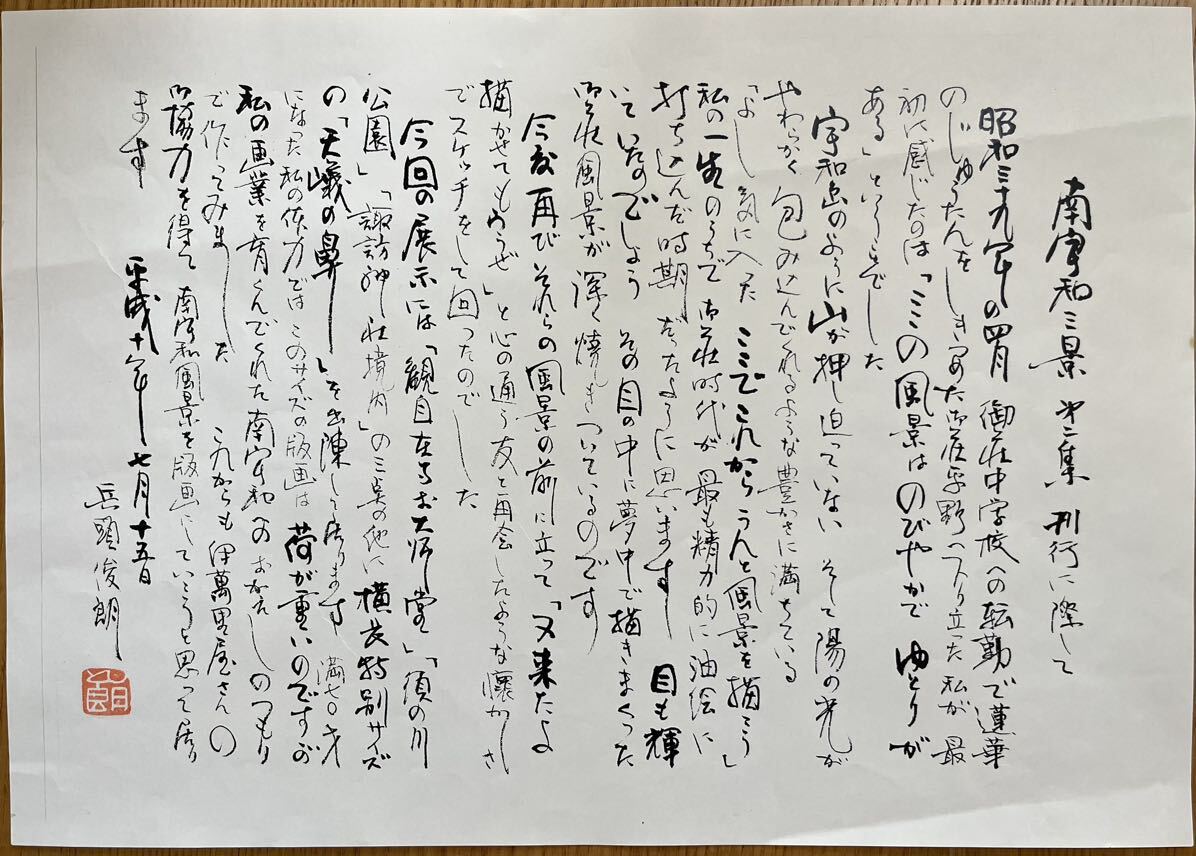 南宇和三景 第二集 刊行に際して
昭和三十九年の四月 御荘中学校への転勤で蓮華
のじゅうたんをしきつめた御荘平野へ降り立った私が 最
初に感じたのは「ここの風景はのびやかで ゆとりが
ある」ということでした
宇和島のように山が押し迫っていない そして陽の光が
やわらかく包み込んでくれるような豊かさに満ちている
「よし 気に入った ここでこれからうんと風景を描こう」
私の一生のうちで 御荘時代が 最も精力的に油絵に
打ち込んだ時期だったように思います 目も輝
いていたのでしょう その目の中に夢中で描きまくった
御荘風景が深く焼きついているのです
今度再びそれらの風景の前に立って「又来たよ
描かせてもらうぜ」と心の通う友と再会したような懐かしさ
でスケッチをして回ったのでした
今回の展示には「観自在寺お大師堂」「須の川
公園」「諏訪神社境内」の三景の他に 横長特別サイズ
の「天嶬の鼻」を出陳して居ります 満七〇才
になった私の体力ではこのサイズの版画は 荷が重いのですが
私の画業を育くんでくれた南宇和へのおかえしのつもり
で作ってみました これからも伊萬里屋さんの
御協力を得て 南宇和風景を版画にしていこうと思って居り
ます
平成十年 七月十五日
兵頭俊朗